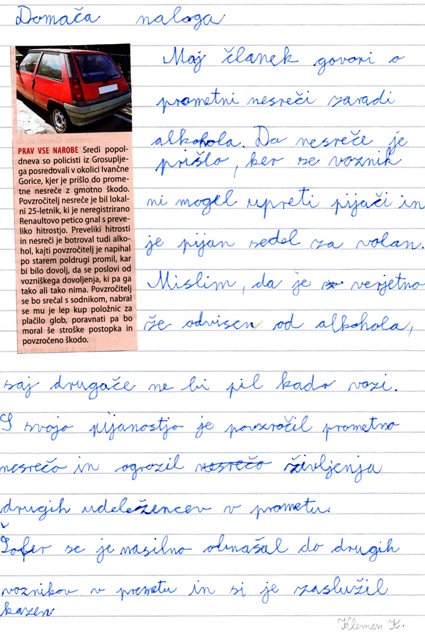 Domača naloga
PRAV VSE NAROBE Sredi popol-
dneva so policisti iz Grosuplje-
ga posredovali v okolici Ivančne
Gorice, kjer je prišlo do prome-
tne nesreče z gmotno škodo.
Povzročitelj nesreče je bil lokal-
ni 25-letnik, ki je neregistrirano
Renaultovo petico gnal s preve-
liko hitrostjo. Preveliki hitrosti
in nesreči je botroval tudi alko-
hol, kajti povzročitelj je napihal
po starem poldrugi promil, kar
bi bilo dovolj, da se poslovi od
vozniškega dovoljenja, ki pa ga
tako ali tako nima. Povzročitelj
se bo srečal s sodnikom, nabral
se mu je lep kup položnic za
plačilo glob, poravnati pa bo
moral še stroške postopka in
povzročeno škodo.
Moj članek govori o
prometni nesreči zaradi
alkohola. Da nesreče je
prišlo, ker se voznik
ni mogel upreti pijači in
je pijan sedel za volan.
Mislim, da je verjetno
že odvisen od alkohola,
saj drugače ne bi pil kado vozi.
S svojo pijanostjo je povzročil prometno
nesrečo in ogrozil nesrečo življenja
drugih udeležencev v prometu.
Šofer se je nasilno obnašal do drugih
voznikov v prometu in si je zaslužil
kazen
Klemen K.